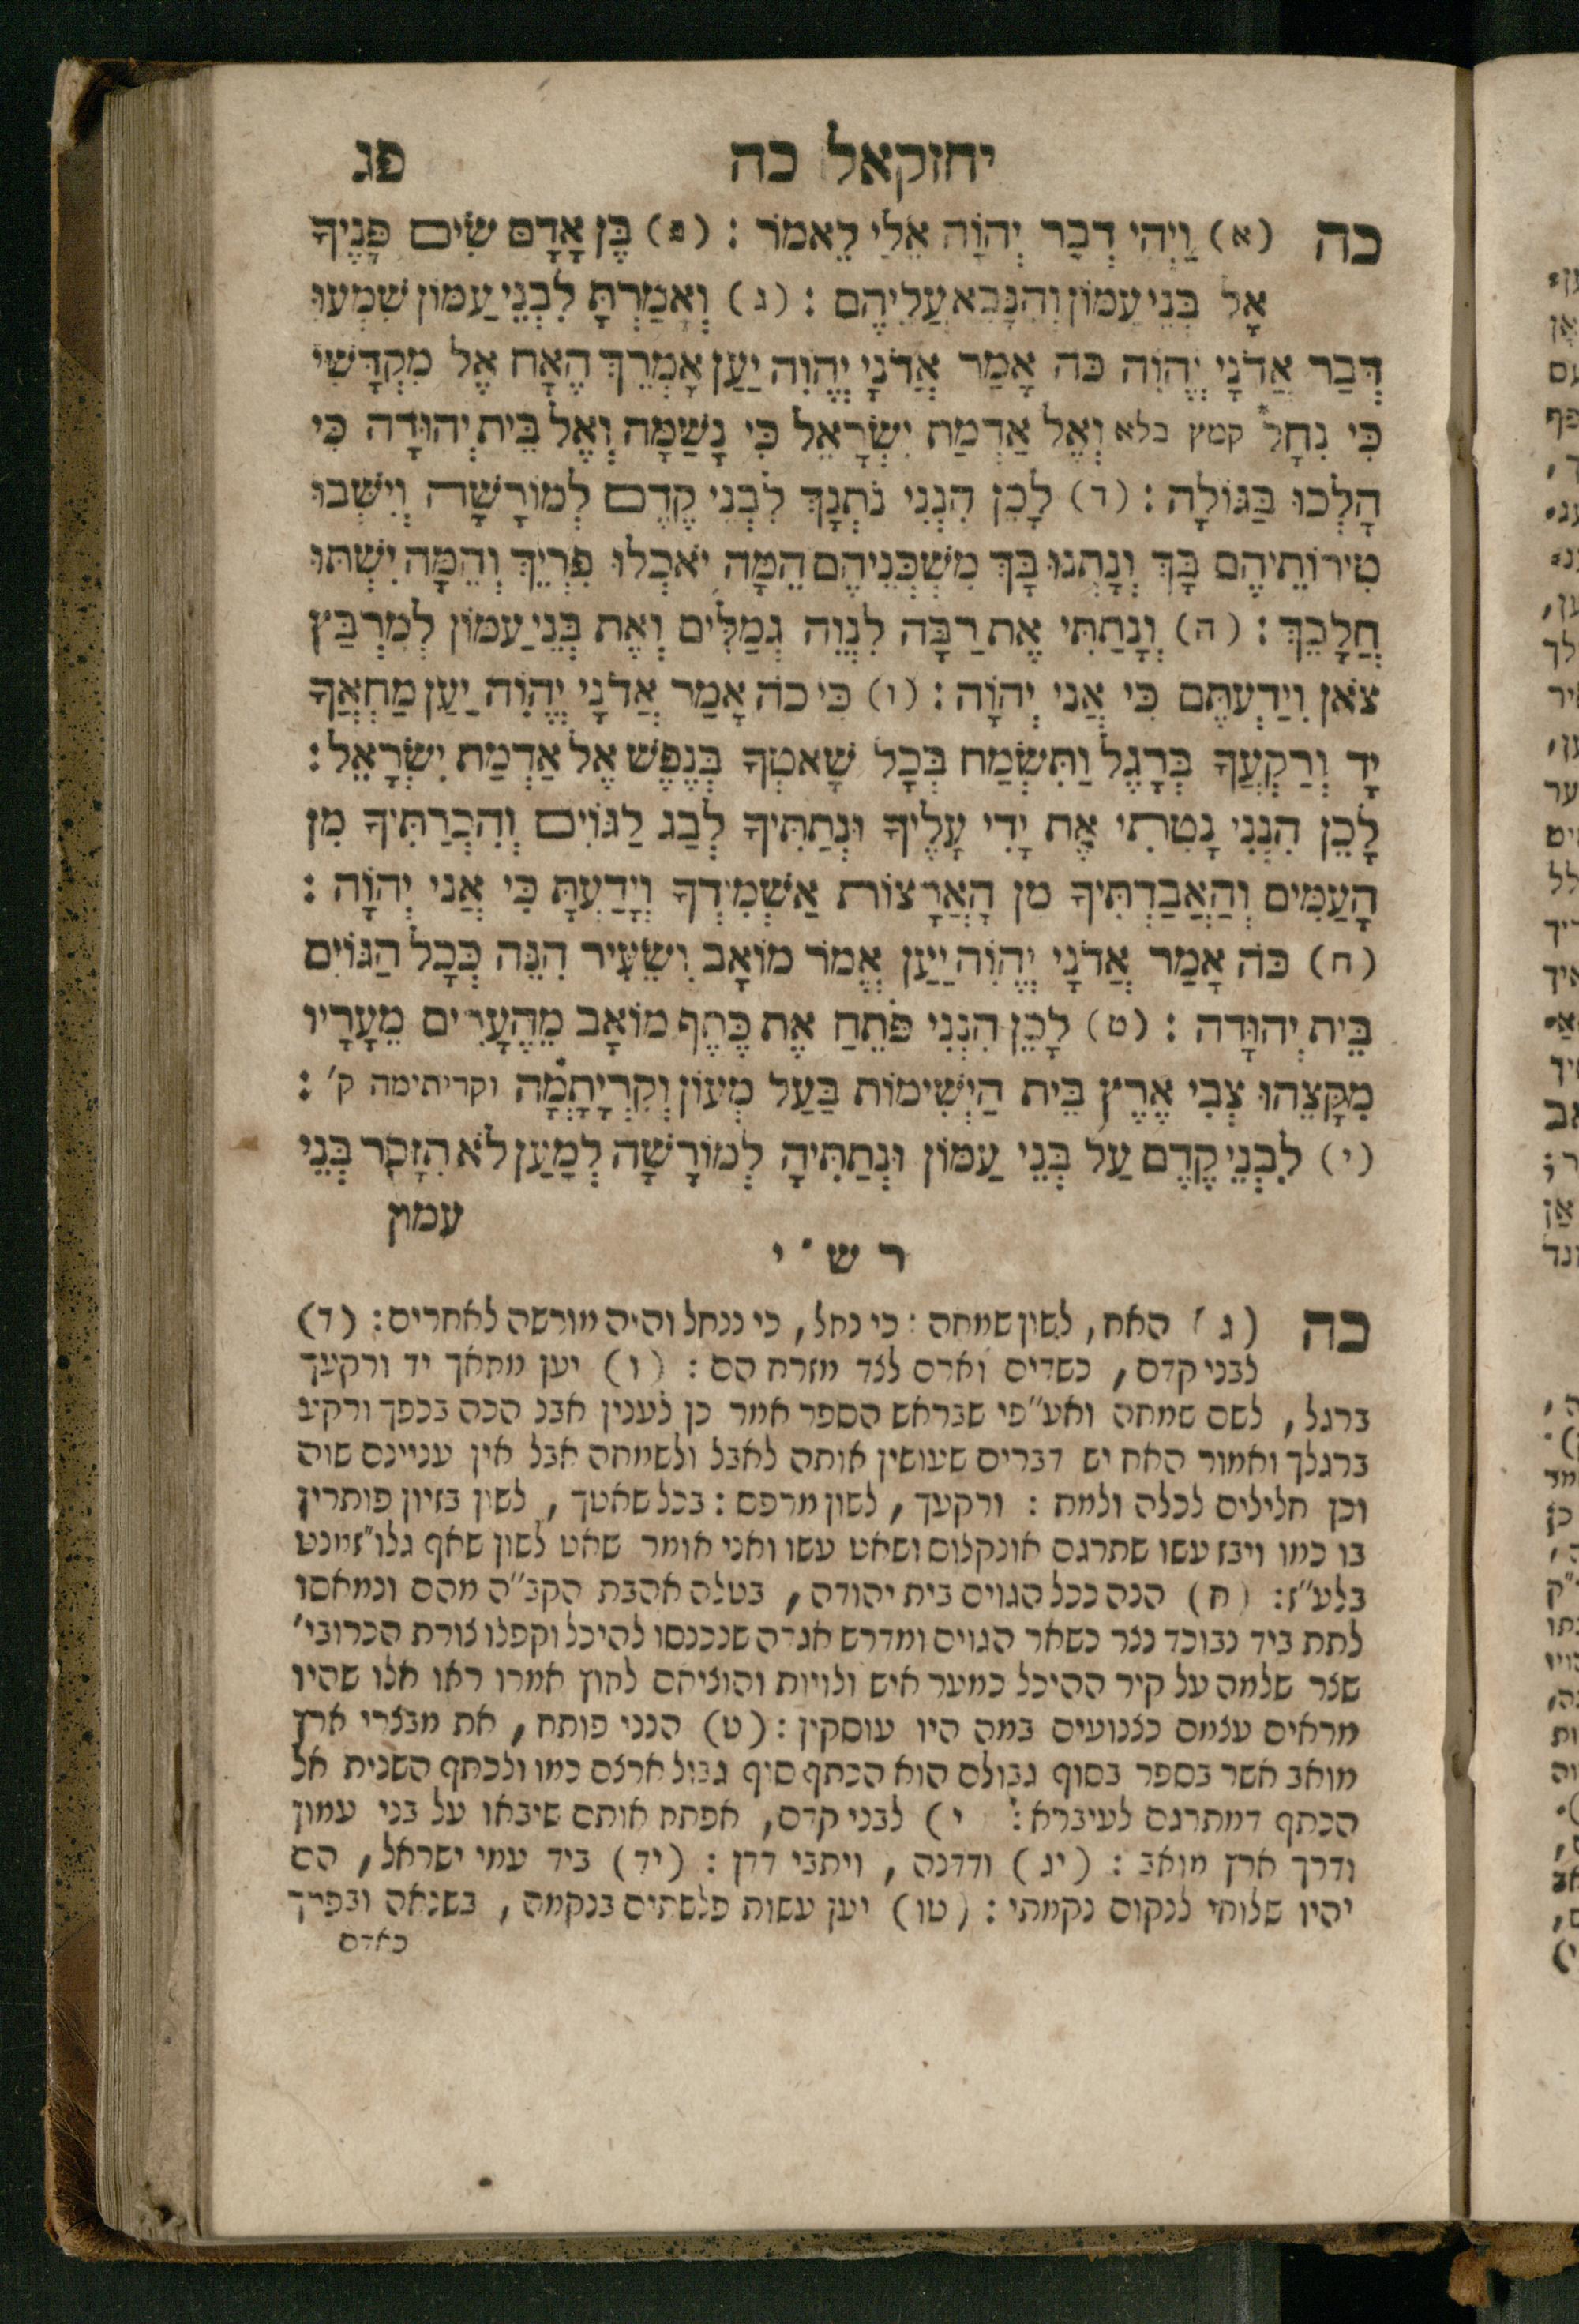 יחזקאל כה פג
כה (א) וַיְהִי דְבַר יְהוָֹה אֵלַי לֵאמֹר : (ב) בֶּן אָדָם שִׂים פָּנֶיךָ
אֶל בְּנֵי עַמּוֹן וְהִנָּבֵא עֲלֵיהֶם : (ג) וְאָמַרְתָּ לִבְנֵי עַמּוֹן שִׁמְעוּ
דְּבַר אֲדֹנָי יֱהֹוִה כֹּה אָמַר אֲדֹנָי יֱהֹוִה יַעַן אָמְרֵךְ הֶאָח אֶל מִקְדָּשִׁי
כִּי נִחָל* קמץ בלא וְאֶל אַדְמַת יִשְׂרָאֵל כִּי נָשַׁמָּה וְאֶל בֵּית יְהוּדָה כִּי
הָלְכוּ בַּגּוֹלָה : (ד) לָכֵן הִנְנִי נֹתְנָךְ לִבְנֵי קֶדֶם לְמוֹרָשָׁה וְיִשְּׁבוּ
טִירוֹתֵיהֶם בָּךְ וְנָתְנוּ בָךְ מִשְׁכְּנֵיהֶם הֵמָּה יֹאכְלוּ פִרְיֵךְ וְהֵמָּה יִשְׁתּוּ
חֲלָבֵךְ : (ה) וְנָתַתִּי אֶת רַבָּה לִנְוֵה גְמַלִּים וְאֶת בְּנֵי עַמּוֹן לְמִרְבַּץ
צֹאן וִידַעְתֶּם כִּי אֲנִי יְהוָֹה : (ו) כִּי כֹה אָמַר אֲדֹנָי יֱהֹוִה יַעַן מַחְאֲךָ
יָד וְרַקְעֲךָ בְּרָגֶל וַתִּשְׂמַח בְּכָל שָׁאטְךָ בְּנֶפֶשׁ אֶל אַדְמַת יִשְׂרָאֵל :
לָכֵן הִנְנִי נָטִיתִי אֶת יָדִי עָלֶיךָ וּנְתַתִּיךָ לְבַג לַגּוֹיִם וְהִכְרַתִּיךָ מִן
הָעַמִּים וְהַאֲבַדְתִּיךָ מִן הָאֲרָצוֹת אַשְׁמִידְךָ וְיָדַעְתָּ כִּי אֲנִי יְהוָֹה :
(ח) כֹּה אָמַר אֲדֹנָי יֱהֹוִה יַעַן אֲמֹר מוֹאָב וְשֵׂעִיר הִנֵּה כְּכָל הַגּוֹיִם
בֵּית יְהוּדָה : (ט) לָכֵן הִנְנִי פֹתֵחַ אֶת כֶּתֶף מוֹאָב מֵהֶעָרִים מֵעָרָיו
מִקָּצֵהוּ צְבִי אֶרֶץ בֵּית הַיְשִׁימוֹת בַּעַל מְעוֹן וְקִרְיָתָמָה וקריתימה ק׳ :
(י) לִבְנֵי קֶדֶם עַל בְּנֵי עַמּוֹן וּנְתַתִּיהָ לְמוֹרָשָׁה לְמַעַן לֹא תִזָּכֵר בְּנֵי
עמון
ר ש״ י
כה (ג) האח, לשון שמחה : כי נחל, כי ננחל והיה מורשה לאחרים : (ד)
לבני קדם, כשדים וארם לצד מזרח הם : (ו) יען מחאך יד ורקעך
ברגל, לשם שמחה ואע״פי שבראש הספר אמר כן לענין אבל הכה בכפך ורקע
ברגלך ואמור האח יש דברים שעושין אותה לאבל ולשמחה אבל אין עניינם שוה
וכן חלילים לכלה ולמת : ורקעך, לשון מרפס : בכל שאטך, לשון בזיון פותרין
בו כמו ויבז עשו שתרגם אונקלוס ושאט עשו ואני אומר שאט לשון שאף גלו״זמינט
בלע״ז : (ח) הנה ככל הגוים בית יהודה, בטלה אהבת הקב״ה מהם ונמאסו
לתת ביד נבוכד נצר כשאר הגוים ומדרש אגדה שנכנסו להיכל וקפלו צורת הכרובי׳
שצר שלמה על קיר ההיכל כמער איש ולויות והוציאם לחוץ אמרו ראו אלו שהיו
מראים עצמם כצנועים במה היו עוסקין : (ט) הנני פותח, את מבצרי ארץ
מואב אשר בספר בסוף גבולם הוא הכתף סוף גבול ארצם כמו ולכתף השנית אל
הכתף דמתרגם לעיברא : י) לבני קדם, אפתח אותם שיבאו על בני עמון
ודרך ארץ מואב : (יג) ודדנה, ויתבי דרן : (יד) ביד עמי ישראל, הם
יהיו שלוחי לנקום נקמתי : (טו) יען עשות פלשתים בנקמה, בשנאה ובפרך
כאדם